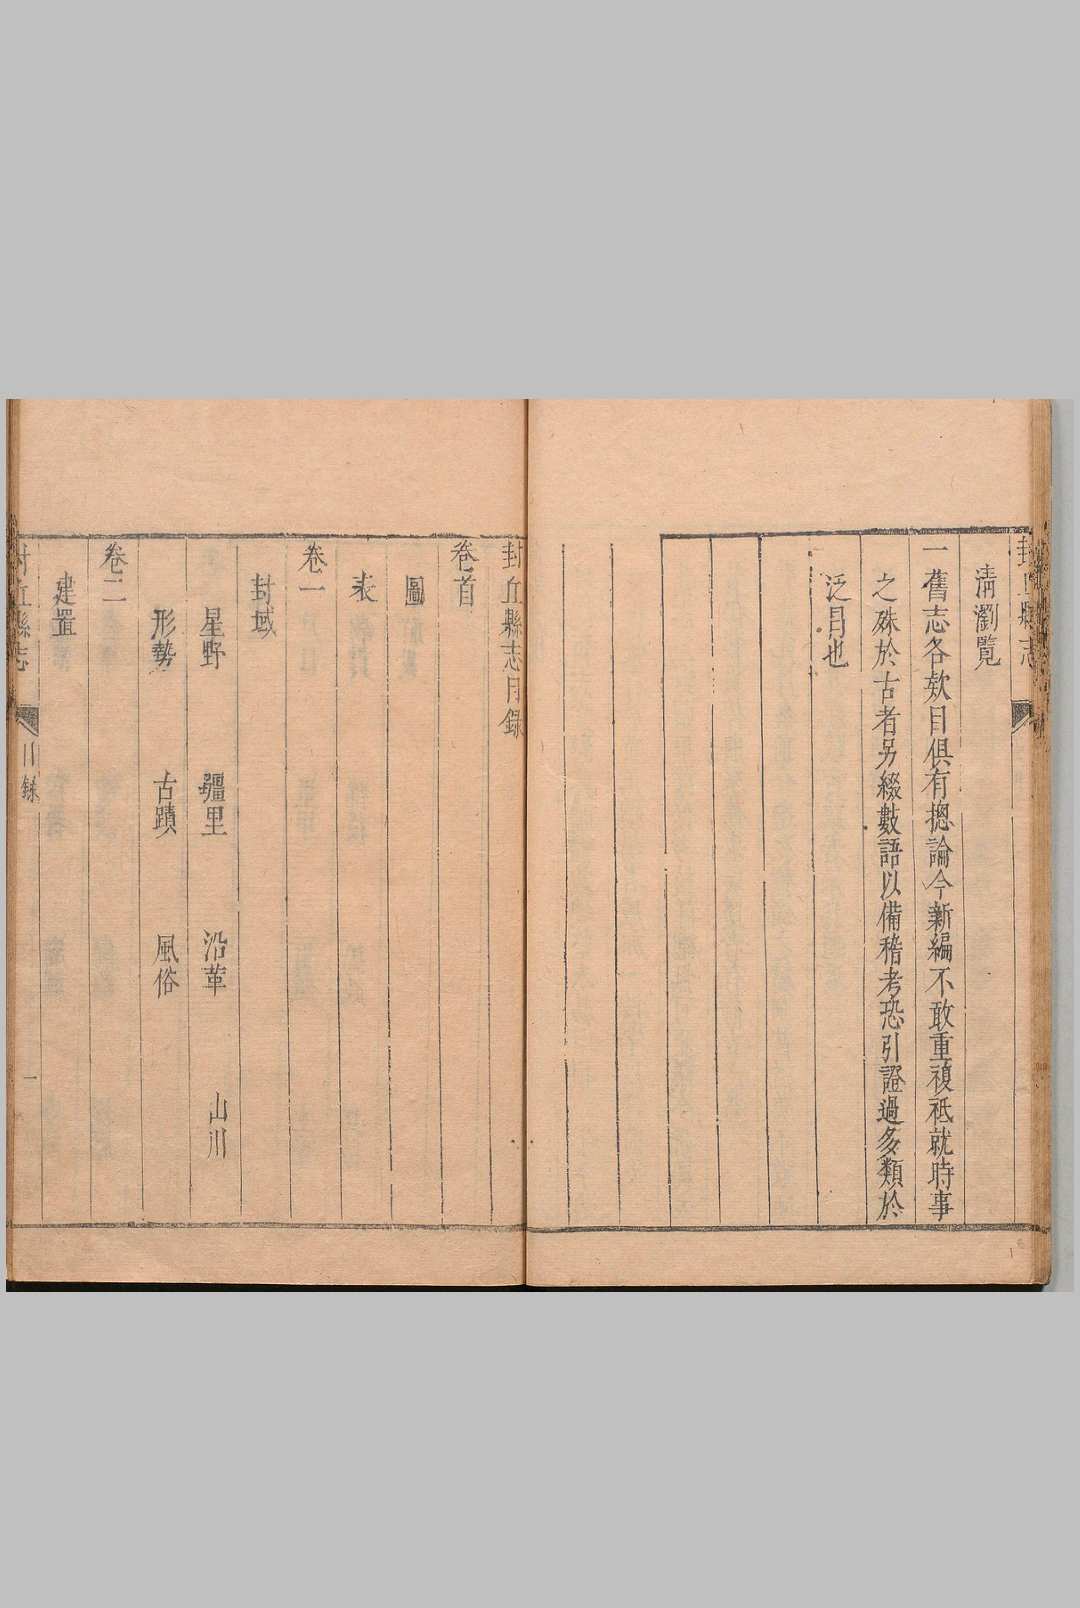 封丘縣志
清瀏覽
一舊志各欵目俱有摠論今新編不敢重複祗就時事
之殊於古者另綴數語以備稽考恐引證過多類於
泛目也
封丘縣志目録
卷首
圖
表
卷一
封域
星野 疆里 沿革 山川
形勢 古蹟 風俗
卷二
建置
封丘縣志 目錄 一